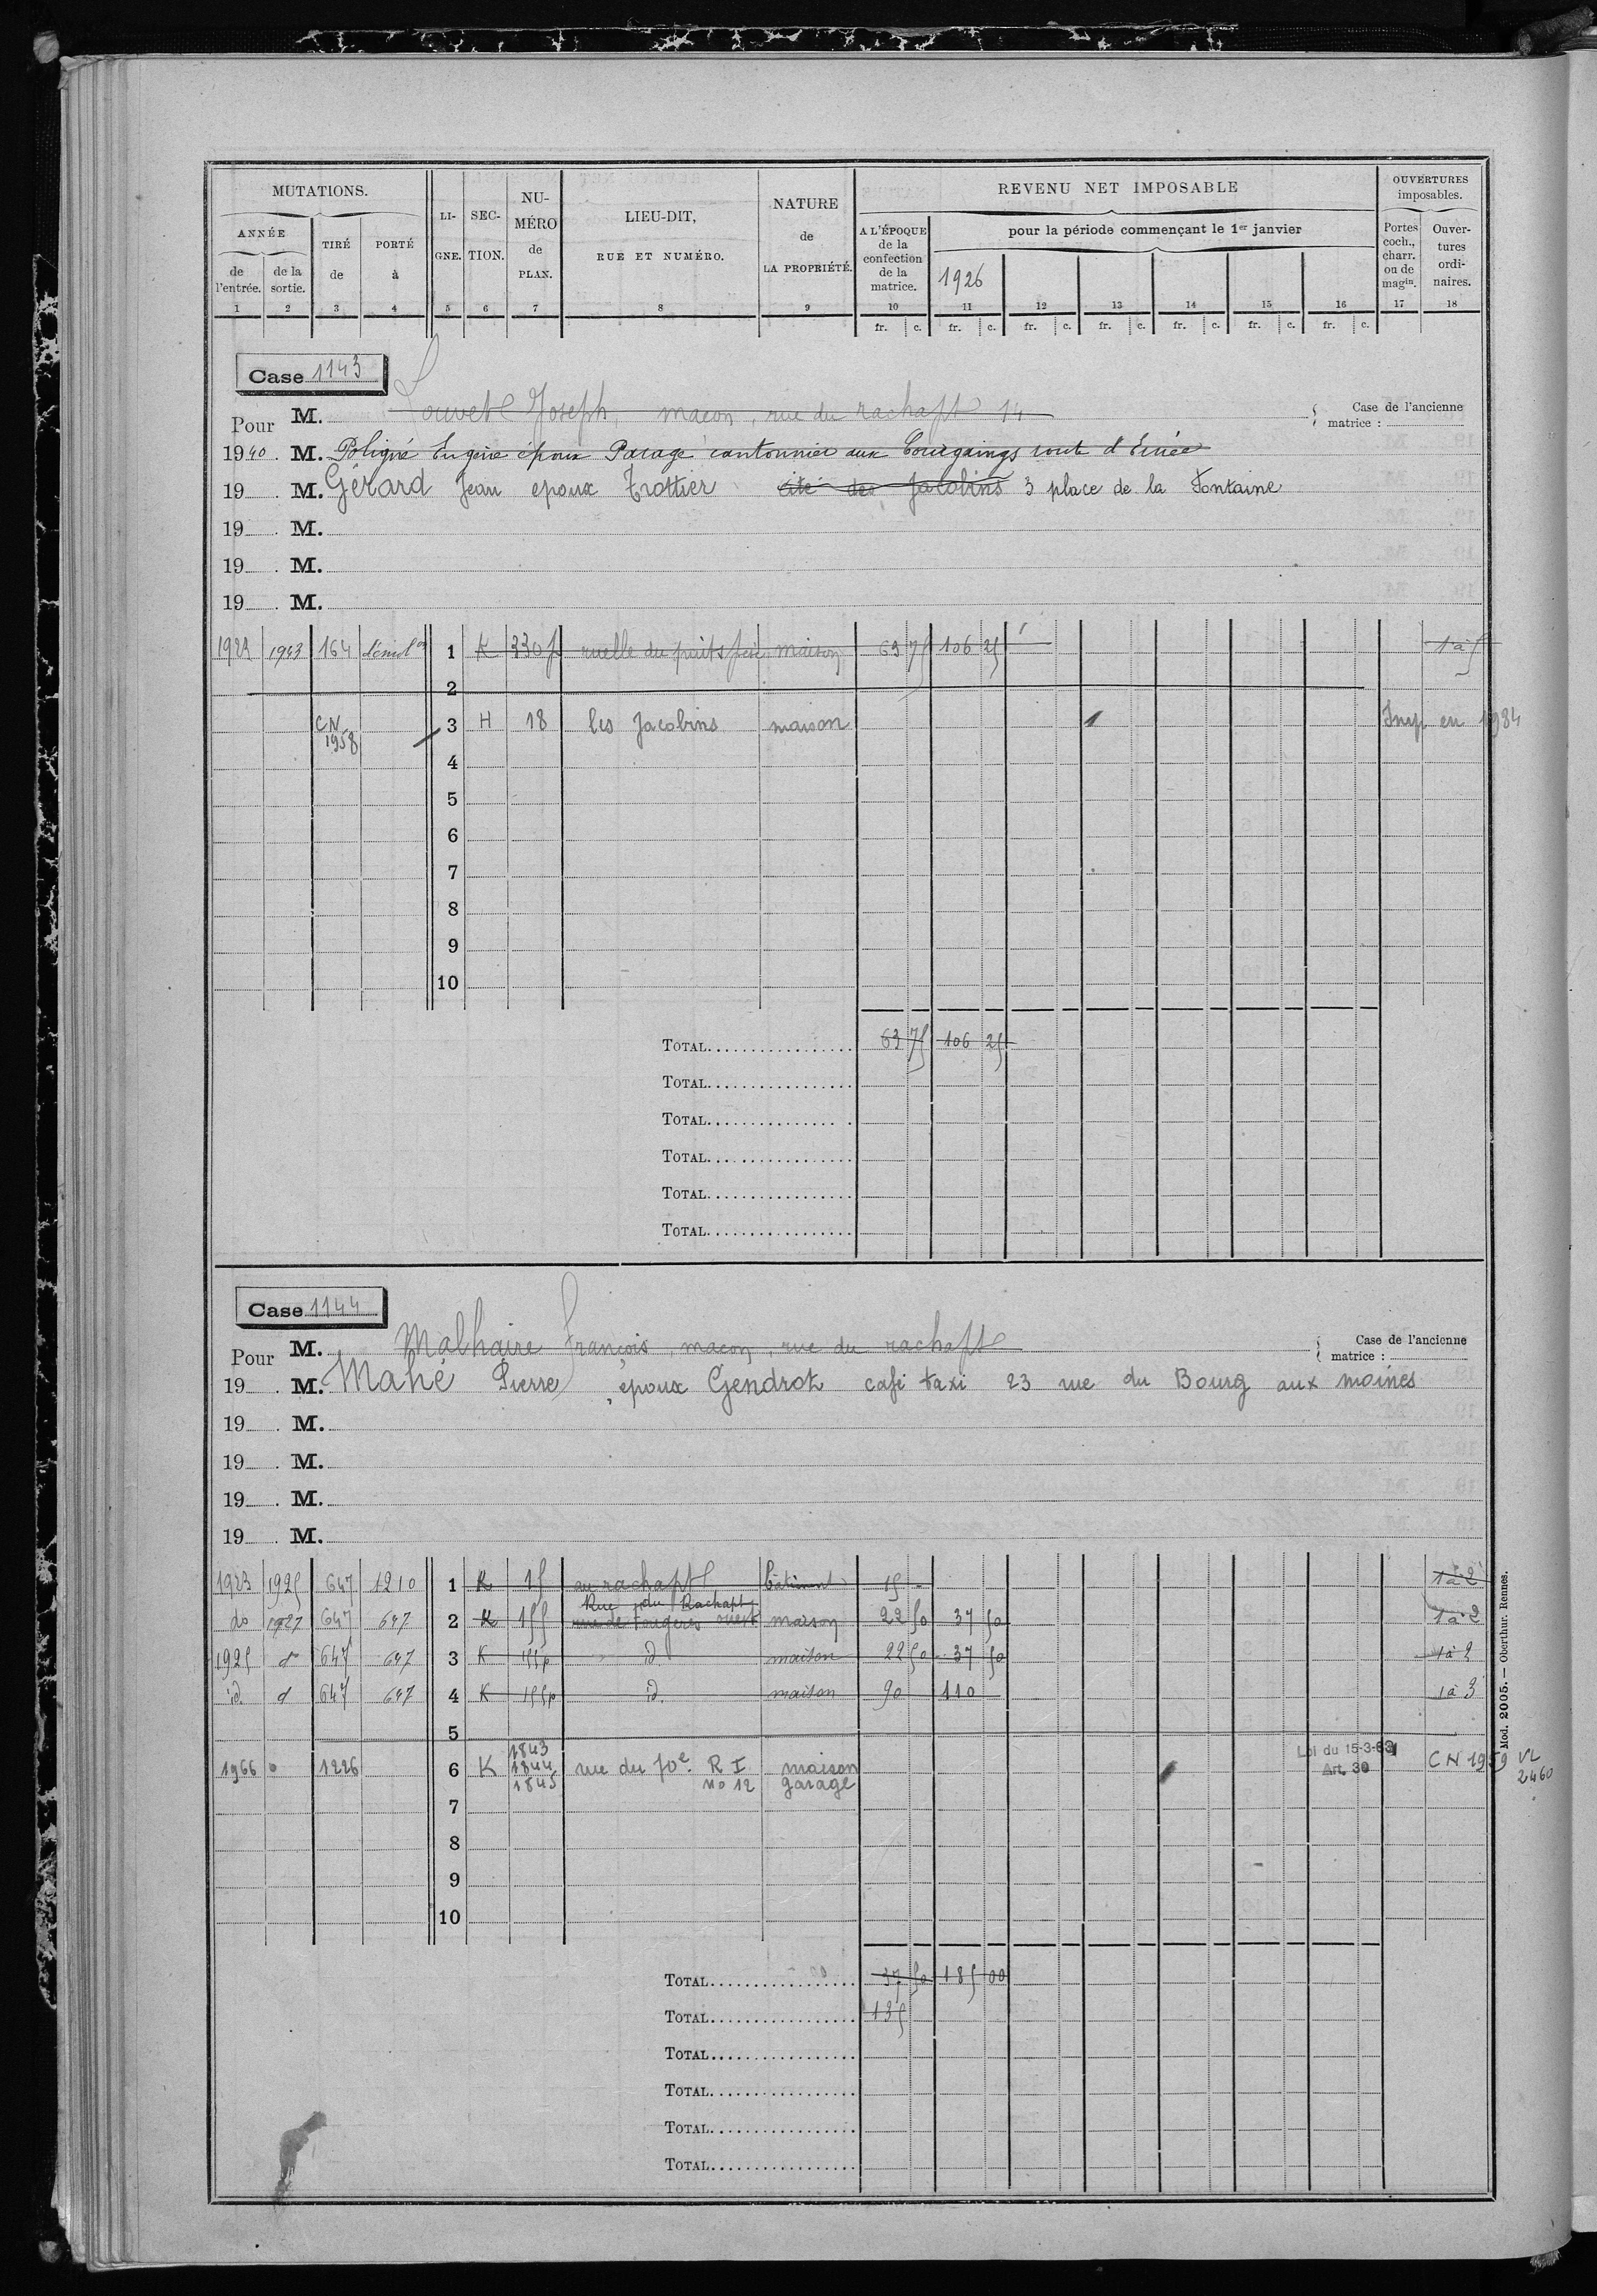 MUTATIONS.
ANNÉE
de l'entrée.
de la sortie.
TIRÉ de
PORTÉ à
LI-GNE.
SEC-TION.
NU-MÉRO de PLAN.
LIEU-DIT, RUE ET NUMÉRO.
NATURE de LA PROPRIÉTÉ.
REVENU NET IMPOSABLE
A L'ÉPOQUE de la confection de la matrice.
pour la période commençant le 1er janvier
1926
OUVERTURES imposables.
Portes coch., charr. ou de magin.
Ouver-tures ordi-naires.
1 2 3 4 5 6 7 8 9 10 11 12 13 14 15 16 17 18
fr. c. fr. c. fr. c. fr. c. fr. c. fr. c. fr. c.
Case 1143
Pour M. Louvel Joseph, maçon, rue du rachapt 14
Case de l'ancienne matrice :
1940 M. Poligné Eugène époux Parage cantonnier aux route d'Ernée
19 M. Gérard Jean epoux Trottier cité des Jacobins 3 place de la Fontaine
19 M.
19 M.
19 M.
1923 1943 164 1 K 330p ruelle du puits maison 63 75 106 25 1 à 5
2
CN 1958 3 H 18 les Jacobins maison Imp en 1984
4
5
6
7
8
9
10
TOTAL 63 75 106 25
TOTAL
TOTAL
TOTAL
TOTAL
TOTAL
Case 1144
Pour M. Malhaire François, maçon, rue du rachapt
Case de l'ancienne matrice :
19 M. Mahé Pierre, époux Gendrot café taxi 23 rue du Bourg aux moines
19 M.
19 M.
19 M.
19 M.
1923 1925 647 1210 1 K 15 au rachapt bâtiment 15 - 1 à 2
Rue du Rachapt
do 1927 647 647 2 K 155 rue de Fougères maison 22 50 37 50 1 à 2
1925 do 647 647 3 K 155p id maison 22 50 37 50 1 à 2
id. d 647 647 4 K 155p id. maison 90 110 1 à 3
5
1966 0 1226 6 K 1843 1844 1845 rue du 70e R I no 12 maison garage Loi du 15-3-63 Art. 30 CN 1959 VL 2460
7
8
9
10
TOTAL 37 50 185 00
TOTAL 135
TOTAL
TOTAL
TOTAL
TOTAL
Mod. 2005. — Oberthur. Rennes.